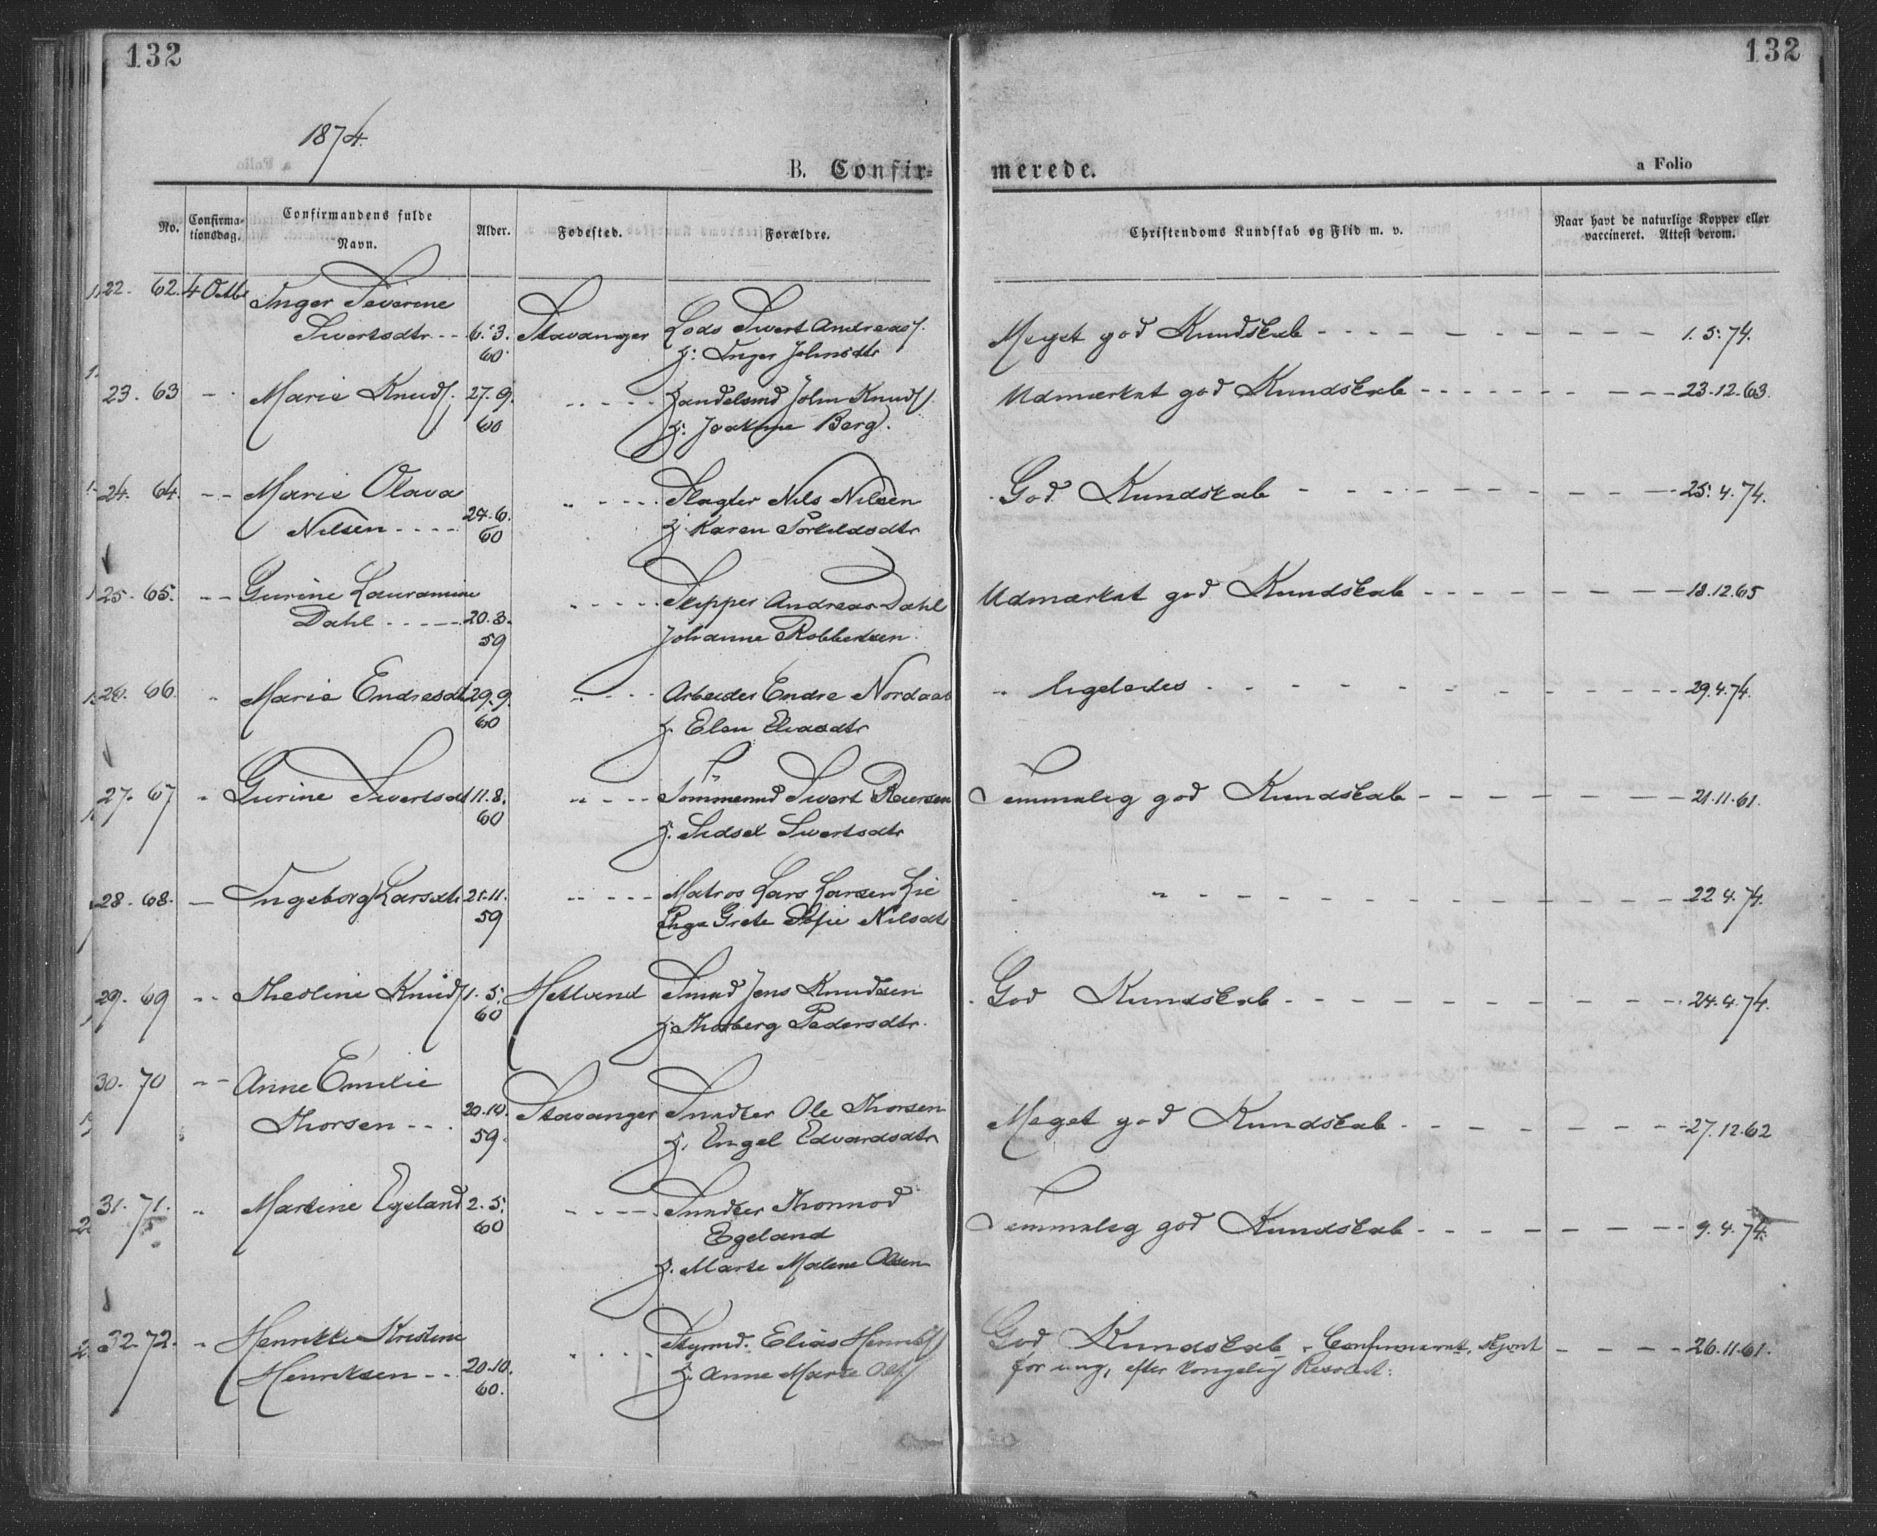 132
132
1874.
B. Confir=
merede.
a Folio
No.
Confirma-
tionsdag.
Confirmandens fulde
Navn.
Alder.
Fødested.
Forældre.
Christendoms Kundskab og Flid m. v.
Naar havt de naturlige Kopper eller
vaccineret. Attest derom.
22. 62. 4 Octbr Inger Severine
Sivertsdtr -- 6.3. Stavanger Lods Sivert Andreas Meget god Kundskab 1.5.74.
60. H: Inger Johnsdtr
23. 63 Marie Knuds. 27.9. Handelsmd John Knuds Udmærket god Kundskab 23.12.63.
60 H: Joakime Berg.
24. 64. Marie Olava Slagter Nils Nilsen God Kundskab 25.4.74.
Nilsen 24.6. H. Karen Torkildsdtr
60
25. 65. Gurine Lauramine Skipper Andreas Dahl Udmærket god Kundskab 18.12.65
Dahl 20.3. Johanne Robbersen.
59
26. 66. Marie Endresdtr 29.9. Arbeider Endre Nordaas " ligeledes 29.4.74.
60 H. Elen Eliasdtr
27. 67 " Gurine Sivertsdt 11.8. Tömmermd Sivert Reiersen Temmelig god Kundskab 21.11.61.
60 H. Sidsel Sivertsdtr
28. 68. Ingeborg Larsdtr 21.11. Matros Lars Larsen Lie " 22.4.74.
59 Pige Grete Sofie Nilsdt
29. 69 Theoline Knuds 1.5. Hetland Smed Jens Knudsen God Kundskab 24.4.74.
60 H. Thorberg Pedersdtr.
30. 70 Anne Emilie
Thorsen 20.10. Stavanger Snedker Ole Thorsen Meget god Kundskab 27.12.62
59. H. Engel Edvardsdtr
31. 71. Martine Egeland 2.5. Snedker Thormod Temmelig god Kundskab 9.4.74.
60 Egeland
H. Marte Malene Olsen
32 72. Henrikke Kristine Styrmd. Elias Henriks God Kundskab. Confirmeret, skjönt 26.11.61.
Henriksen 20.10. H. Anne Marie Ols for ung, efter kongelig Resolut:
60.